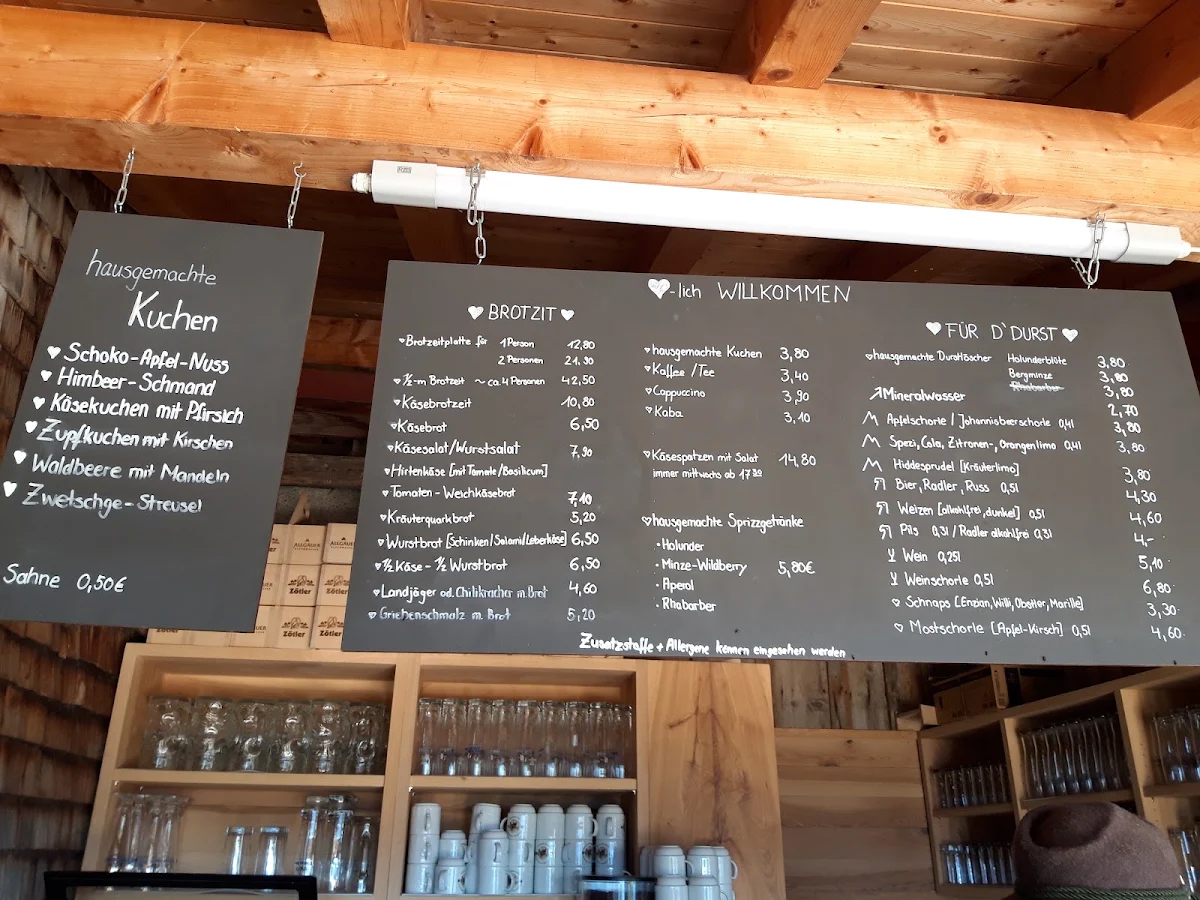 hausgemachte
Kuchen
Schoko-Apfel-Nuss
Himbeer-Schmand
Käsekuchen mit Pfirsich
Zupfkuchen mit Kirschen
Waldbeere mit Mandeln
Zwetschge-Streusel
Sahne 0,50€
-lich WILLKOMMEN
BROTZIT
Brotzeitplatte für 1 Person 12,80
2 Personen 21,30
½-m Brotzeit ~ ca. 4 Personen 42,50
Käsebrotzeit 10,80
Käsebrot 6,50
Käsesalat/Wurstsalat 7,90
Hirtenkäse [mit Tomate/Basilicum]
Tomaten-Weichkäsebrot 7,10
Kräuterquarkbrot 5,20
Wurstbrot [Schinken/Salami/Leberkäse] 6,50
½ Käse-½ Wurstbrot 6,50
Landjäger od. Chilikracher m. Brot 4,60
Griebenschmalz m. Brot 5,20
hausgemachte Kuchen 3,80
Kaffee / Tee 3,40
Cappuccino 3,90
Kaba 3,10
Käsespatzen mit Salat 14,80
immer mittwochs ab 17³⁰
hausgemachte Sprizzgetränke
· Holunder
· Minze-Wildberry 5,80€
· Aperol
· Rhabarber
FÜR D'DURST
hausgemachte Durstlöscher Holunderblüte 3,80
Bergminze 3,80
Rhabarber 3,80
Mineralwasser 2,70
Apfelschorle / Johannisbeerschorle 0,4l 3,80
Spezi, Cola, Zitronen-, Orangenlimo 0,4l 3,80
Hiddesprudel [Kräuterlimo] 3,80
Bier, Radler, Russ 0,5l 4,30
Weizen [alkoholfrei, dunkel] 0,5l 4,60
Pils 0,3l / Radler alkoholfrei 0,3l 4,-
Wein 0,25l 5,10
Weinschorle 0,5l 6,80
Schnaps [Enzian, Willi, Obstler, Marille] 3,30
Mostschorle [Apfel-Kirsch] 0,5l 4,60
Zusatzstoffe + Allergene können eingesehen werden
ALLGÄUER
Zötler
Zötler
Zötler
Zötler